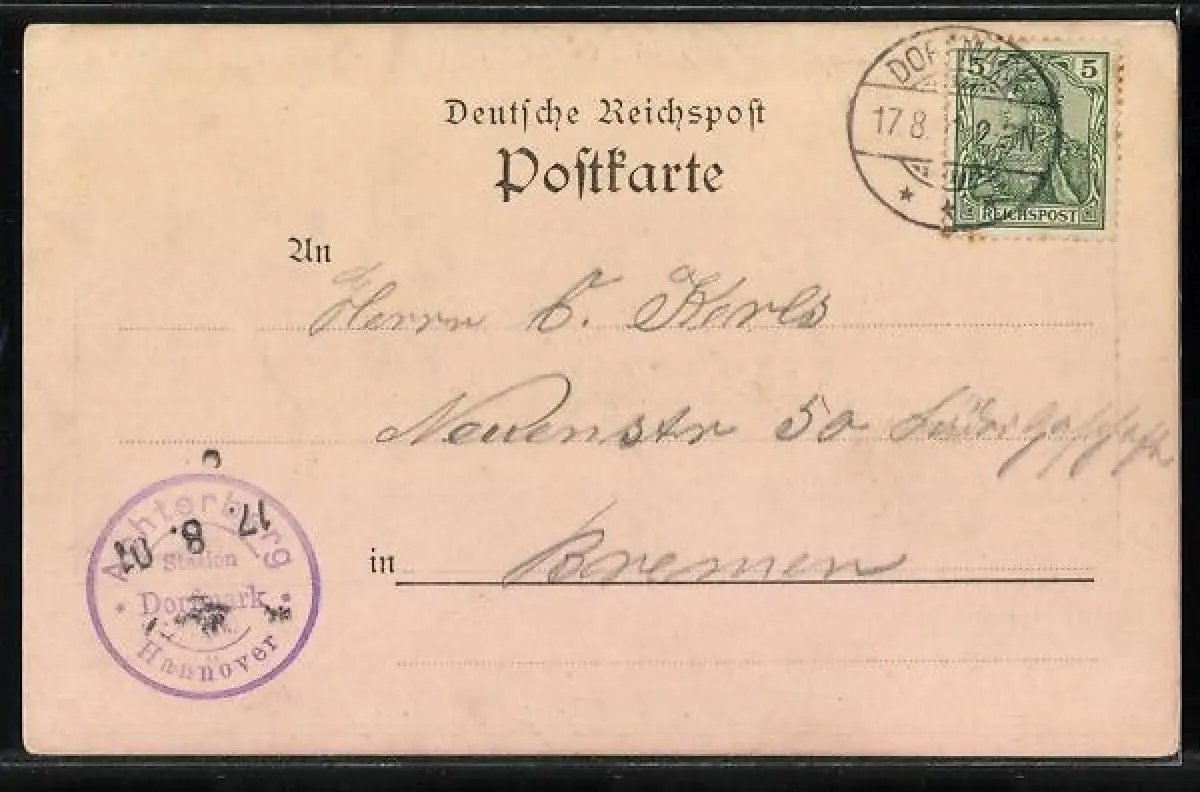 Deutsche Reichspost
Postkarte
DORFMARK
17.8.
2-3N
5 5
REICHSPOST
An
Herrn C. Karls
Neuenstr 50
in Bremen
Achterberg
17. 8. 01
Station
Dorfmark
Hannover